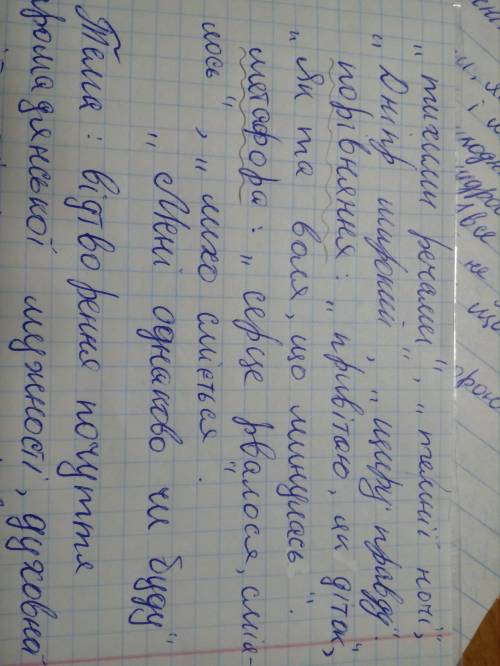 "тихими речами", "темнії ночі",
"Дніпр широкий", "щиру правду".
порівняння: "привітаю, як діток",
"Як та воля, що минулась".
метафора: "серце рвалося, смія-
лось", "лихо сміється.
"Мені однаково чи буду"
Тема: відтворення почуття
громадянської мужності, духовна